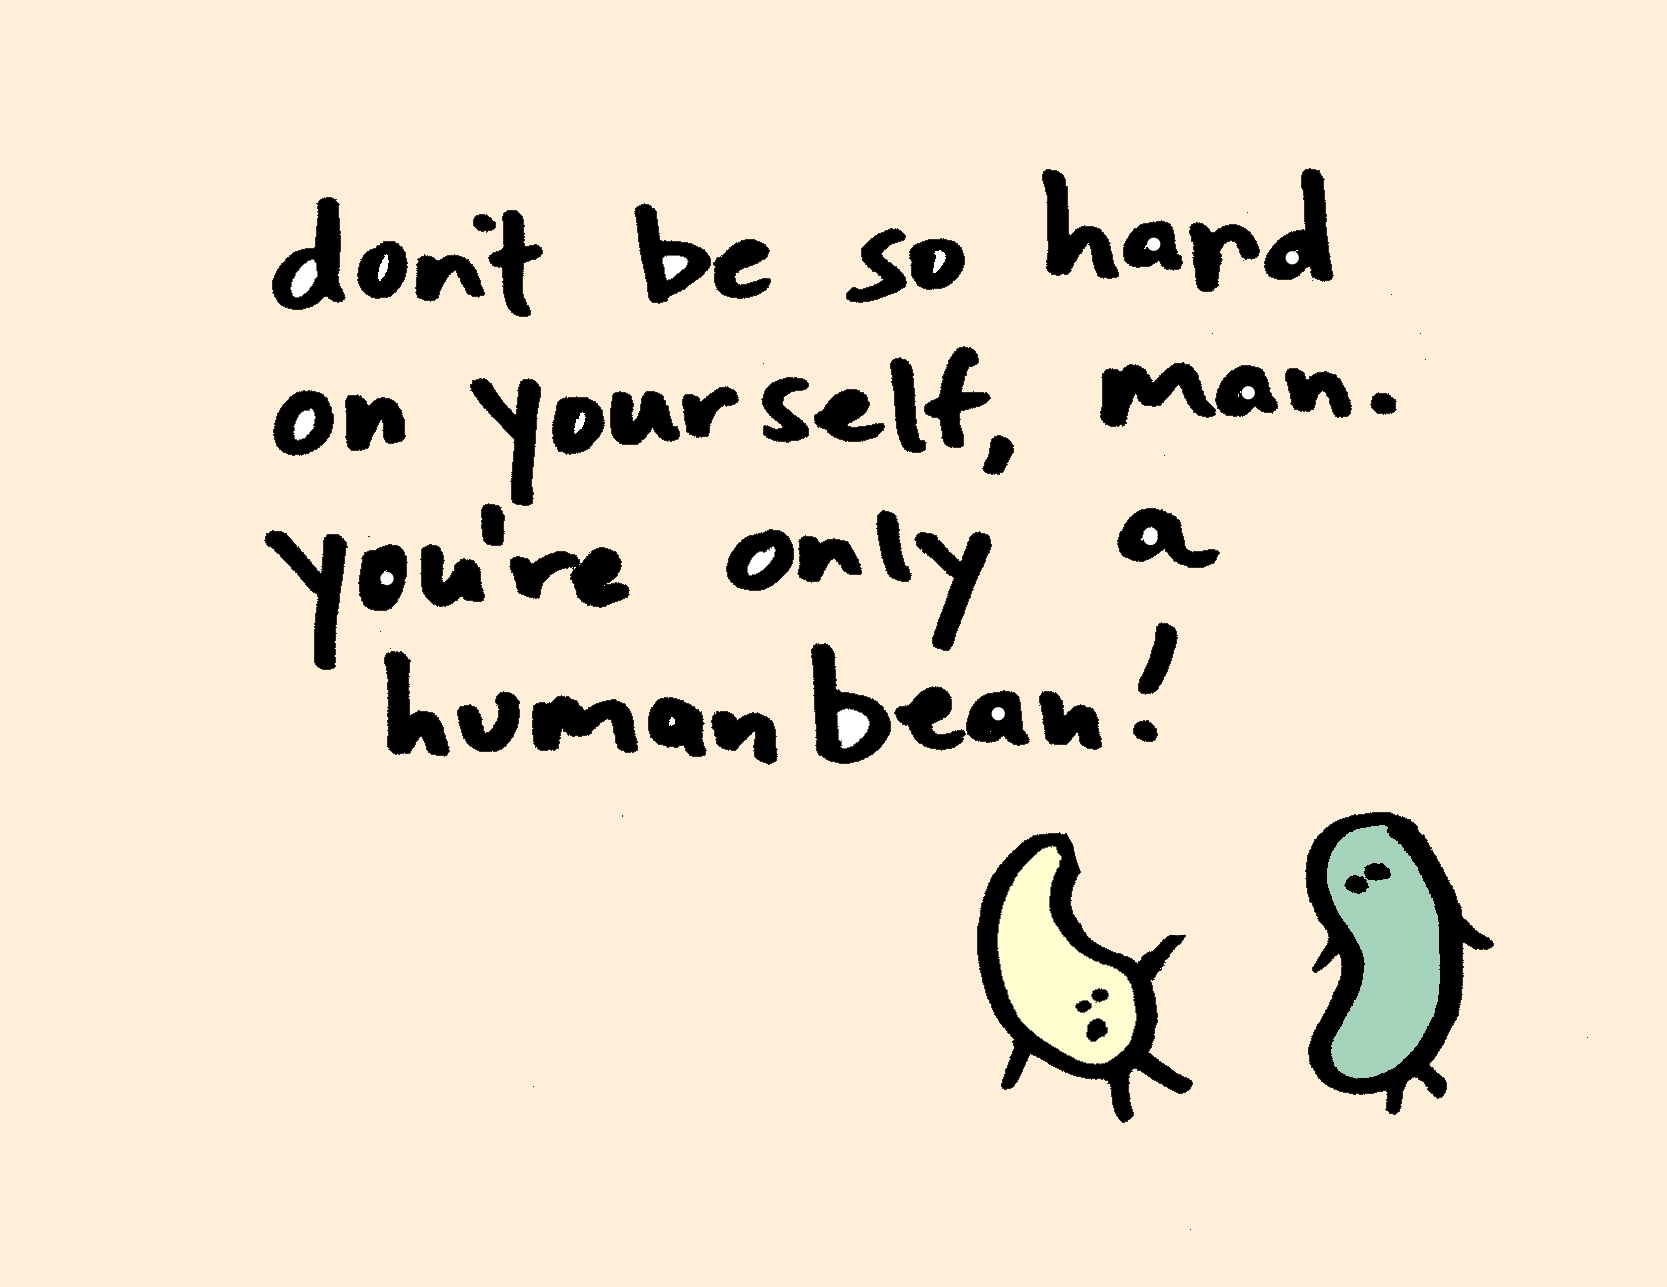 don't be so hard
on yourself, man.
you're only a
human bean!